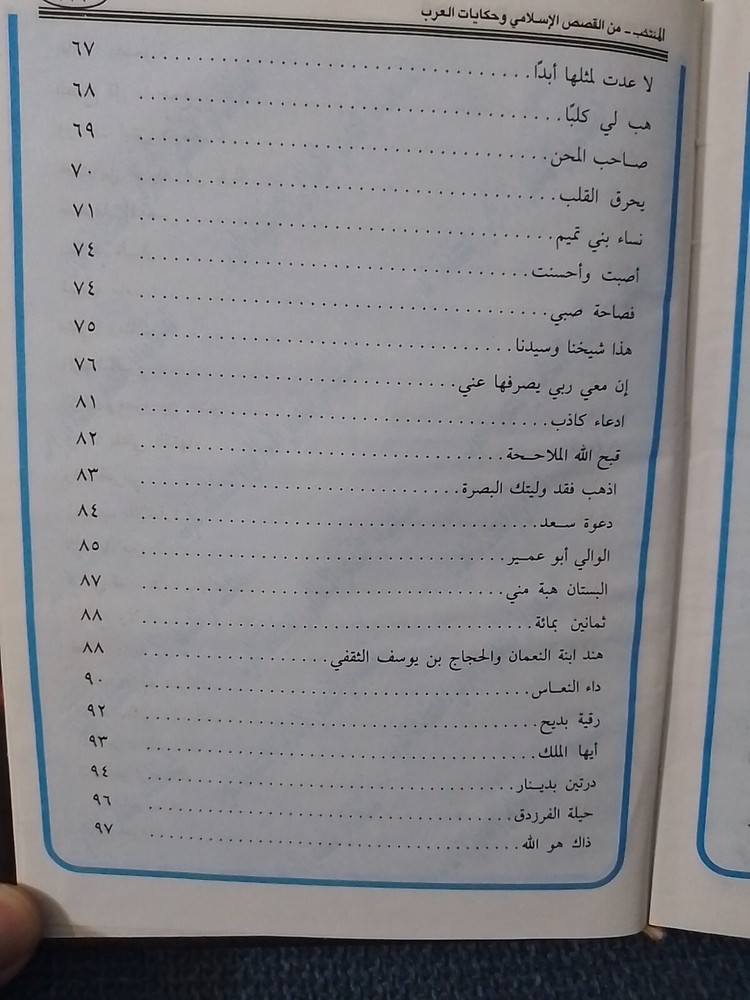 المنتخب ــ من القصص الإسلامي وحكايات العرب
لا عدت لمثلها أبدًا ........ ٦٧
هب لي كلبًا ........ ٦٨
صاحب المحن ........ ٦٩
يحرق القلب ........ ٧٠
نساء بني تميم ........ ٧١
أصبت وأحسنت ........ ٧٤
فصاحة صبي ........ ٧٤
هذا شيخنا وسيدنا ........ ٧٥
إن معي ربي يصرفها عني ........ ٧٦
ادعاء كاذب ........ ٨١
قبح الله الملاحة ........ ٨٢
اذهب فقد وليتك البصرة ........ ٨٣
دعوة سعد ........ ٨٤
الوالي أبو عمير ........ ٨٥
البستان هبة مني ........ ٨٧
ثمانين بمائة ........ ٨٨
هند ابنة النعمان والحجاج بن يوسف الثقفي ........ ٨٨
داء النعاس ........ ٩٠
رقية بديح ........ ٩٢
أيها الملك ........ ٩٣
درتين بدينار ........ ٩٤
حيلة الفرزدق ........ ٩٦
ذاك هو الله ........ ٩٧